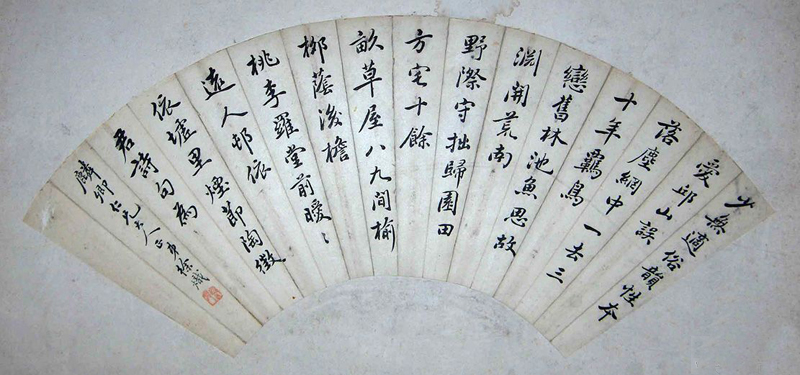 少無適俗韻性本
愛邱山誤
落塵網中一去三
十年羈鳥
戀舊林池魚思故
淵開荒南
野際守拙歸園田
方宅十餘
畝草屋八九間榆
柳蔭後檐
桃李羅堂前曖〻
遠人邨依
依墟里煙節陶徵
君詩句為
麟卿仁兄大人正弟徐